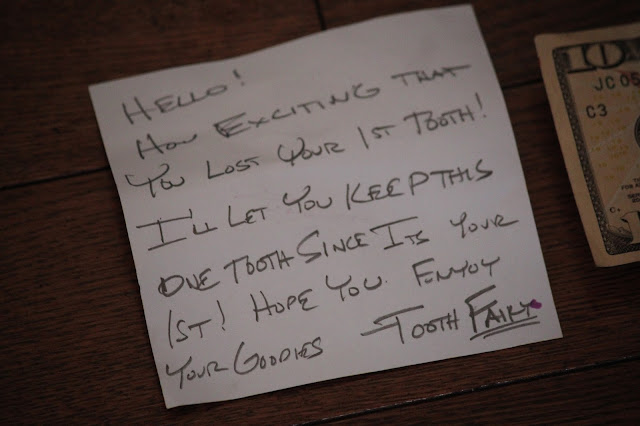 HELLO!
HOW EXCITING THAT
YOU LOST YOUR 1ST TOOTH!
I'LL LET YOU KEEP THIS
ONE TOOTH SINCE ITS YOUR
1ST! HOPE YOU ENJOY
YOUR GOODIES TOOTH FAIRY
10
JC 06
C3